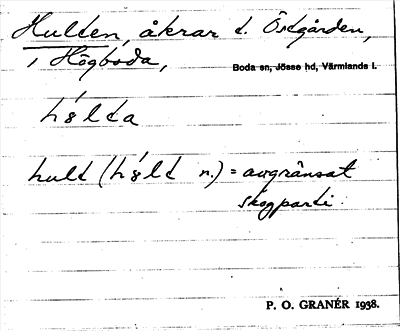 Hulten, åkrar t. Östgården,
i Högboda,
Boda sn, Jösse hd, Värmlands l.
hult ( n.) = avgränsat
skogparti
P. O. GRANÉR 1938.